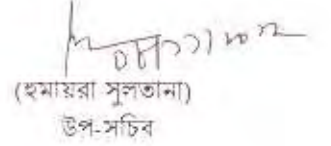 (হুমায়রা সুলতানা)
উপ-সচিব